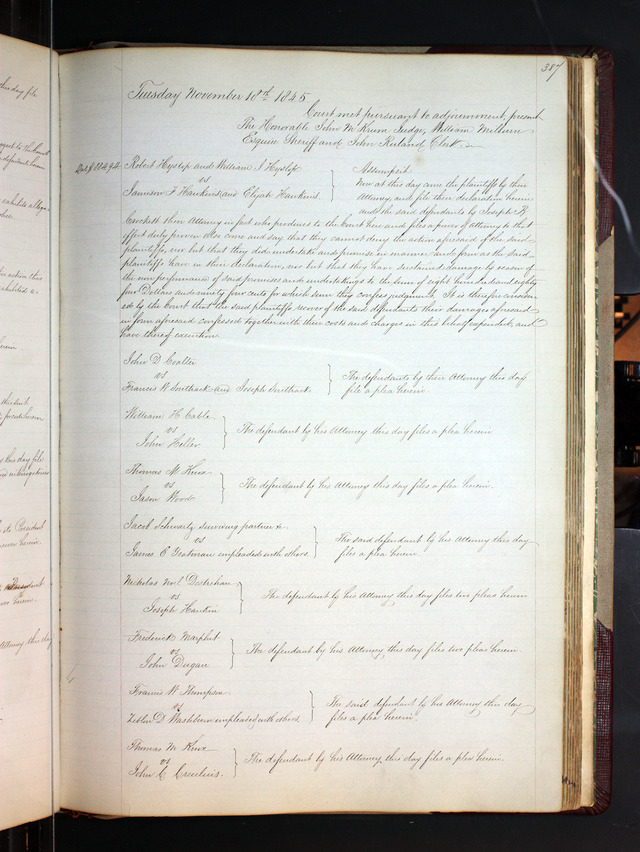 387
Tuesday November 18th 1845
Court met pursuant to adjournment, present
The Honorable John M Krum Judge, William Milburn
Esquire Sheriff and John Ruland Clerk &
Robert Hyslop and William J Hyslop
vs
Jamison F Hawkins and Elijah Hawkins
Assumpsit
Now at this day come the plaintiffs by their
Attorney and file their declaration herein
and the said defendants by Joseph B
Crockett their Attorney in fact who produces to the Court here and files a power of Attorney to that
effect duly proven also come and say that they cannot deny the action aforesaid of the said
plaintiffs, nor but that they did undertake and promise in manner and form as the said
plaintiffs have in their declaration, nor but that they have sustained damages by reason of
the non performance of said promises and undertakings to the sum of eight hundred and eighty
four Dollars and ninety four cents for which sum they confess judgment. It is therefore consider
ed by the Court that the said plaintiffs recover of the said defendants their damages aforesaid
in form aforesaid confessed together with their costs and charges in this behalf expended and
have thereof execution
John D Coalter
vs
Francis W Southack and Joseph Southack
The defendants by their Attorney this day
file a plea herein
William H Cable
vs
John Heller
The defendant by his Attorney this day files a plea herein
Thomas M Knox
vs
Jason Wood
The defendant by his Attorney this day files a plea herein.
Jacob Schwartz surviving partner &
vs
James E Yeatman impleaded with others
The said defendant by his Attorney this day
files a plea herein
Nicholas
vs
Joseph Hankin
The defendant by his Attorney this day files two pleas herein
Frederick
vs
John Dugan
The defendant by his Attorney this day files two pleas herein
Francis W Thompson
vs
D Washburn impleaded with others
The said defendant by his Attorney this day
files a plea herein.
Thomas M Knox
vs
John C
The defendant by his Attorney, this day files a plea herein.